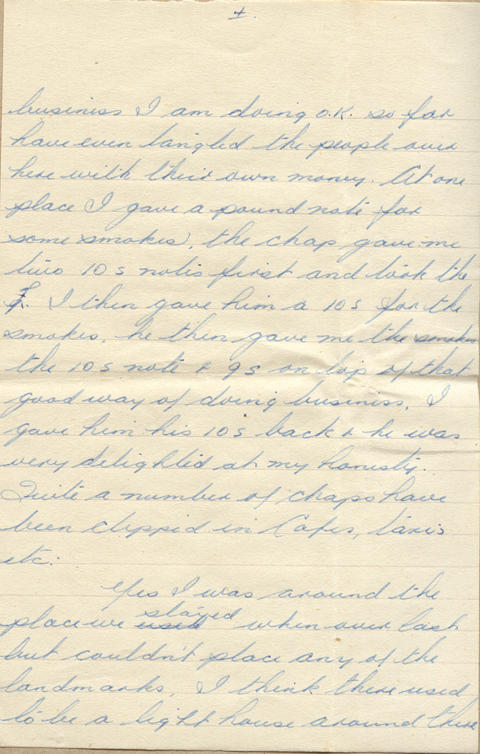 4.
business I am doing O.K. so far
have even tangled the people over
here with their own money. At one
place I gave a pound note for
some smokes, the chap gave me
two 10s notes first and took the
£. I then gave him a 10s for the
smokes, he then gave me the smokes
the 10s note & 9s on top of that
good way of doing business. I
gave him his 10s back & he was
very delighted at my honesty.
Quite a number of chaps have
been clipped in Cafes, taxis
etc.
Yes I was around the
place we used stayed when over last
but couldn't place any of the
landmarks, I think there used
to be a light house around there